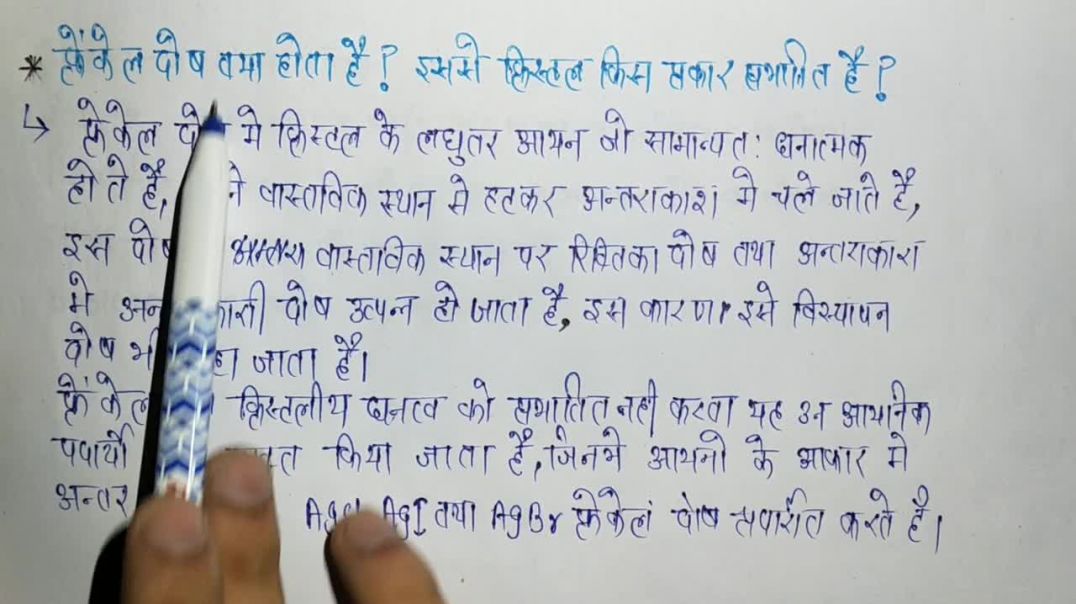 * फ्रेंकेल दोष क्या होता है? इससे क्रिस्टल किस प्रकार प्रभावित है?
↳ फ्रेंकेल मे क्रिस्टल के लघुतर आयन जो सामान्यत: धनात्मक
होते है, वास्तविक स्थान से हटकर अन्तराकाश मे चले जाते है,
इस वास्तविक स्थान पर रिक्तिका दोष तथा अन्तराकाश
मे दोष उत्पन्न हो जाता है, इस कारण इसे विस्थापन
दोष जाता है।
फ्रेंकेल क्रिस्टलीय घनत्व को प्रभावित नही करता यह उन आयनिक
पदार्थो किया जाता है, जिनमे आयनो के आकार मे
अन्तर AgI तथा AgBr फ्रेंकेल दोष प्रदर्शित करते है।